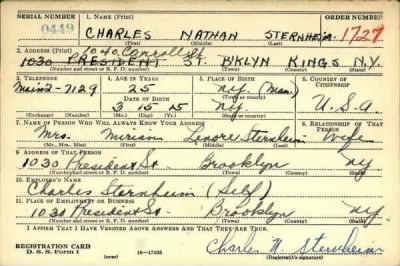 SERIAL NUMBER 1. NAME (Print) ORDER NUMBER
0449 CHARLES NATHAN STERNHEIM 1727
(First) (Middle) (Last)
2. ADDRESS (Print) 1040 Carroll St
1030 PRESIDENT ST. B'KLYN KINGS N.Y.
(Number and street or R. F. D. number) (Town) (County) (State)
3. TELEPHONE 4. AGE IN YEARS 5. PLACE OF BIRTH 6. COUNTRY OF CITIZENSHIP
Main 2-7129 25 N.Y. (Man.)
DATE OF BIRTH (Town or county)
3 15 15 N.Y. U.S.A
(Exchange) (Number) (Mo.) (Day) (Yr.) (State or country)
7. NAME OF PERSON WHO WILL ALWAYS KNOW YOUR ADDRESS 8. RELATIONSHIP OF THAT PERSON
Mrs. Miriam Lenore Sternheim Wife
(Mr., Mrs., Miss) (First) (Middle) (Last)
9. ADDRESS OF THAT PERSON
1030 President St Brooklyn NY
(Number and street or R. F. D. number) (Town) (County) (State)
10. EMPLOYER'S NAME
Charles Sternheim (Self)
11. PLACE OF EMPLOYMENT OR BUSINESS
1030 President St Brooklyn NY
(Number and street or R. F. D. number) (Town) (County) (State)
I AFFIRM THAT I HAVE VERIFIED ABOVE ANSWERS AND THAT THEY ARE TRUE.
REGISTRATION CARD Charles N Sternheim
D. S. S. Form 1 (over) 16—17105 (Registrant's signature)